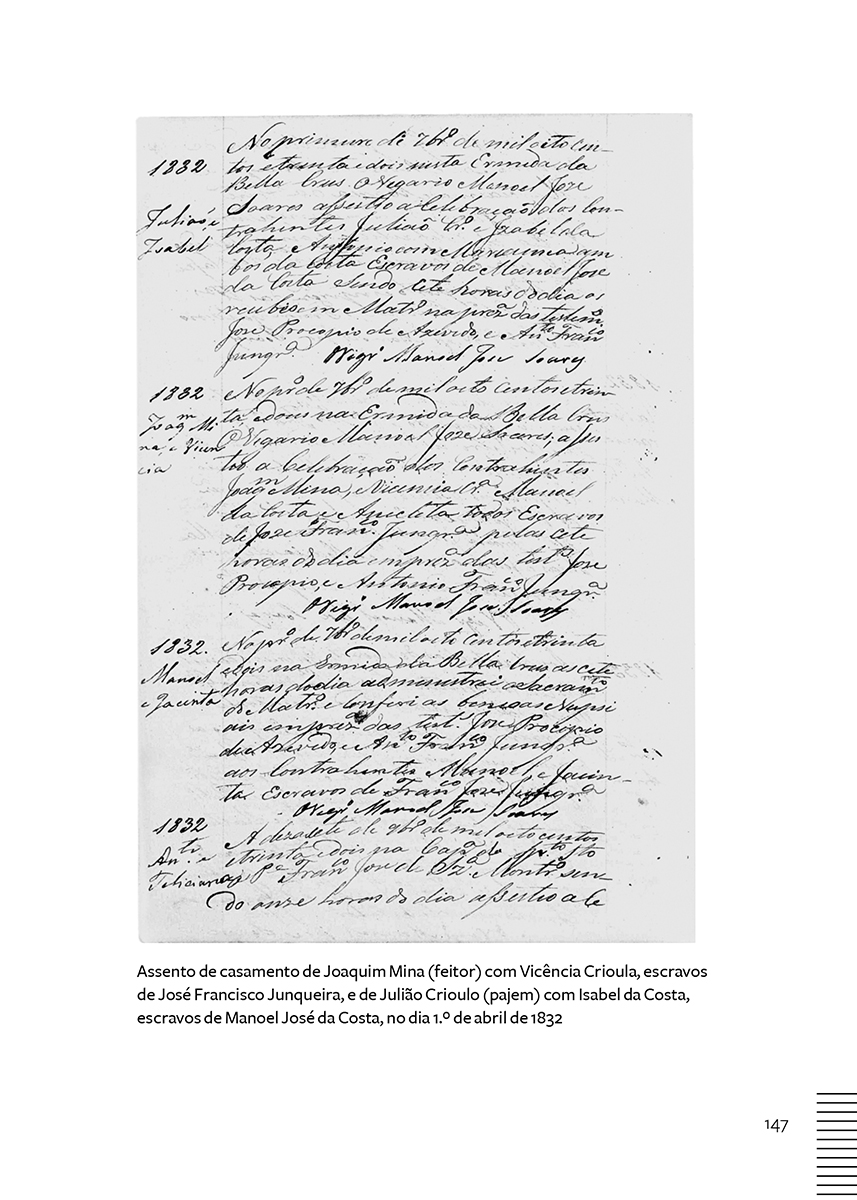 1832
Juliaõ, e
Isabel
No primeiro de 7br.º de mil oito cen-
tos e trinta e dois nesta Ermida da
Bella Crus o Vegario Manoel Joze
Soares assestio a Celebraçaõ dos Con-
trahentes Juliaõ Cr.º e Izabel da
Costa, e Antonio com Marianna am
bos da Costa Escravos de Manoel Joze
da Costa sendo Cete horas do dia os
recubio em Matr.º na prez.ª das testem.
Joze Procopio de Azevedo, e An.to Fran.co
Junqr.ª Ovigr.º Manoel Joze Soares
1832
Joaq.m Mi
na, e Vicen
cia
No pr.º de 7br.º de mil oito centos e trin
ta, e dous na Ermida da Bella Crus
O Vigario Manoel Joze Soares, asses
tio a Celebraçaõ dos Contrahentes
Joaq.m Mina, e Vicencia Cr.ª Manoel
da Costa e Anicleta todos Escravos
de Joze Fran.co Junqr.ª pelas Cete
horas do dia em prez.ª das test.as Joze
Procopio, e Antonio Fran.co Junqr.ª
Ovigr.º Manoel Joze Soares
1832.
Manoel
e Jacinta
No pr.º de 7br.º de mil oito centos e trinta
e dois na Ermida da Bella Crus as cete
horas do dia administrei o Sacram.to
de Matr.º e conferi as bençaos Nupsi
ais em prez.ª das test.as Joze Procopio
de Azevedo, e An.to Fran.co Junqr.ª
aos Contrahentes Manoel, e Jacin-
ta Escravos de Fran.co Joze Junqr.ª
Ovigr.º Manoel Joze Soares
1832
An.to e
Feliciana
A dezasete de 7br.º de mil oito centos
e trinta e dois na Cap.ª do
o P.e Fran.co Joze de Sz.ª Montr.º sen-
do onze horas do dia assestio a Ce
Assento de casamento de Joaquim Mina (feitor) com Vicência Crioula, escravos
de José Francisco Junqueira, e de Julião Crioulo (pajem) com Isabel da Costa,
escravos de Manoel José da Costa, no dia 1.º de abril de 1832
147